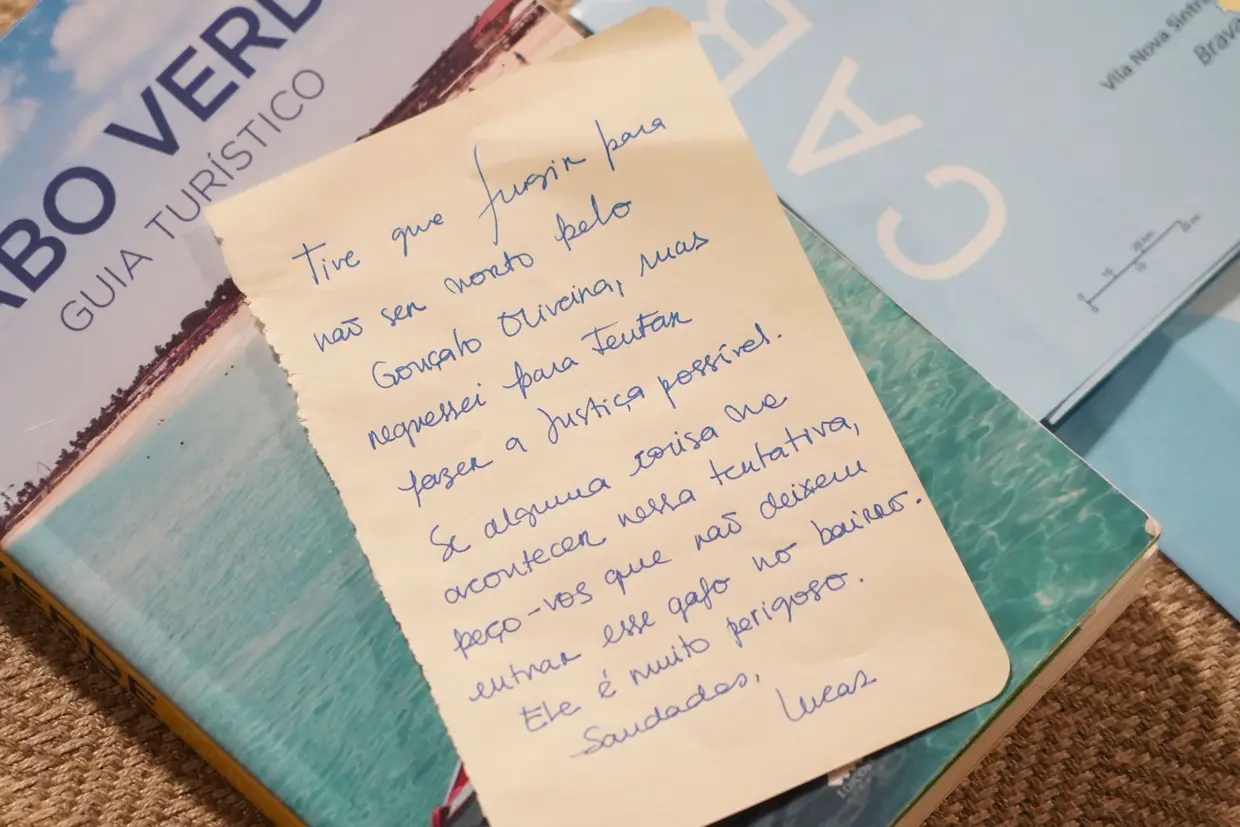 ABO VERD
GUIA TURÍSTICO
CAB
Vila Nova Sintra
Brava
Tive que fugir para
não ser morto pelo
Gonçalo Oliveira, mas
regressei para tentar
fazer a Justiça possível.
Se alguma coisa me
acontecer nessa tentativa,
peço-vos que não deixem
entrar esse gajo no bairro.
Ele é muito perigoso.
Saudades,
Lucas